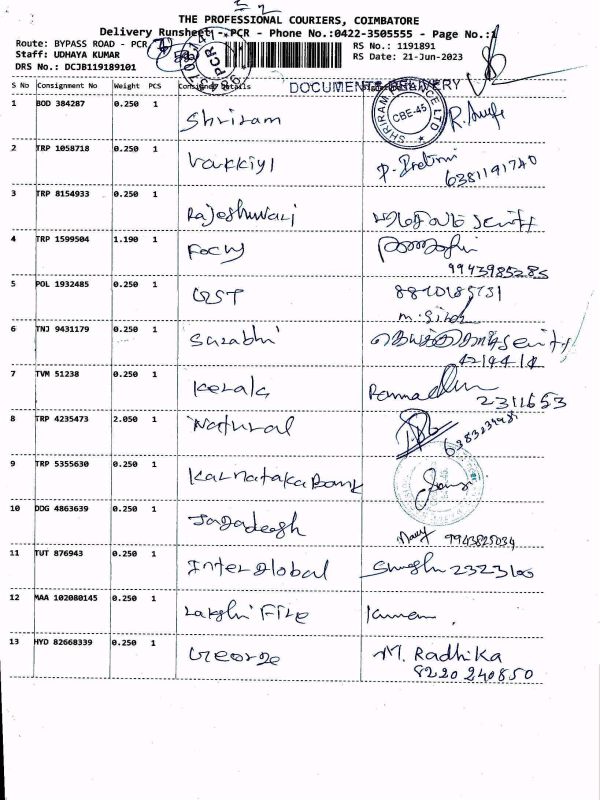 THE PROFESSIONAL COURIERS, COIMBATORE
Delivery Runsheet - PCR - Phone No.:0422-3505555 - Page No.:1
Route: BYPASS ROAD - PCR
RS No.: 1191891
Staff: UDHAYA KUMAR
RS Date: 21-Jun-2023
DRS No.: DCJB119189101
DOCUMENT DELIVERY
S No Consignment No Weight PCS Consignee Details
1 BOD 384287 0.250 1 Shriram
CBE-45
2 TRP 1058718 0.250 1 Vakkiyl
6381191740
3 TRP 8154933 0.250 1 Rajeshwari
4 TRP 1599504 1.190 1 Focus
9943985285
5 POL 1932485 0.250 1 GST 8870185731
6 TNJ 9431179 0.250 1 Sarabhi
4214414
7 TVM 51238 0.250 1 Kerala
2311653
8 TRP 4235473 2.050 1 Natural
9 TRP 5355630 0.250 1 Karnataka Bank
10 DDG 4863639 0.250 1 Jagadeesh
9943825034
11 TUT 876943 0.250 1 Inter Global 2323100
12 MAA 102080145 0.250 1 Lakshi Fire
13 HYD 82668339 0.250 1 George M. Radhika
8220240850